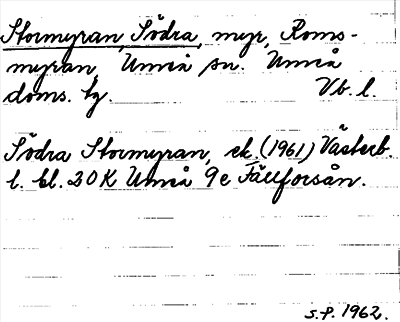 Stormyran, Södra, myr, Roms-
myran, Umeå sn. Umeå
doms. tg. Vb. l.
Södra Stormyran, ek. (1961) Västerb.
l. bl. 20K Umeå 9e Fällforsån.
S.P. 1962.